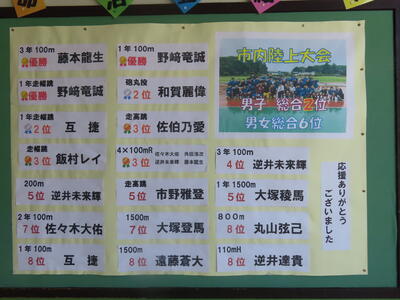 3年100m
優勝 藤本龍生
1年100m
優勝 野﨑竜誠
1年走幅跳
優勝 野﨑竜誠
砲丸投
2位 和賀麗偉
1年走幅跳
2位 互捷
走高跳
3位 佐伯乃愛
走幅跳
3位 飯村レイ
4×100mR
3位
佐々木大佑
逆井未来輝 藤本龍生
200m
5位 逆井未来輝
走高跳
5位 市野雅登
2年100m
7位 佐々木大佑
1500m
7位 大塚登馬
1年100m
8位 互捷
1500m
8位 遠藤蒼大
市内陸上大会
男子 総合2位
男女総合6位
3年100m
4位 逆井未来輝
1年1500m
5位 大塚稜馬
800m
8位 丸山弦己
110mH
8位 逆井達貴
応援ありがとう
ございました